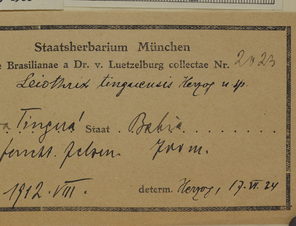 Staatsherbarium München
e Brasilianae a Dr. v. Luetzelburg collectae Nr. 2023
Leiothrix tinguensis Herzog n. sp.
Tingua Staat. Bahia
1912. VIII. determ. Herzog, 17. VI. 24